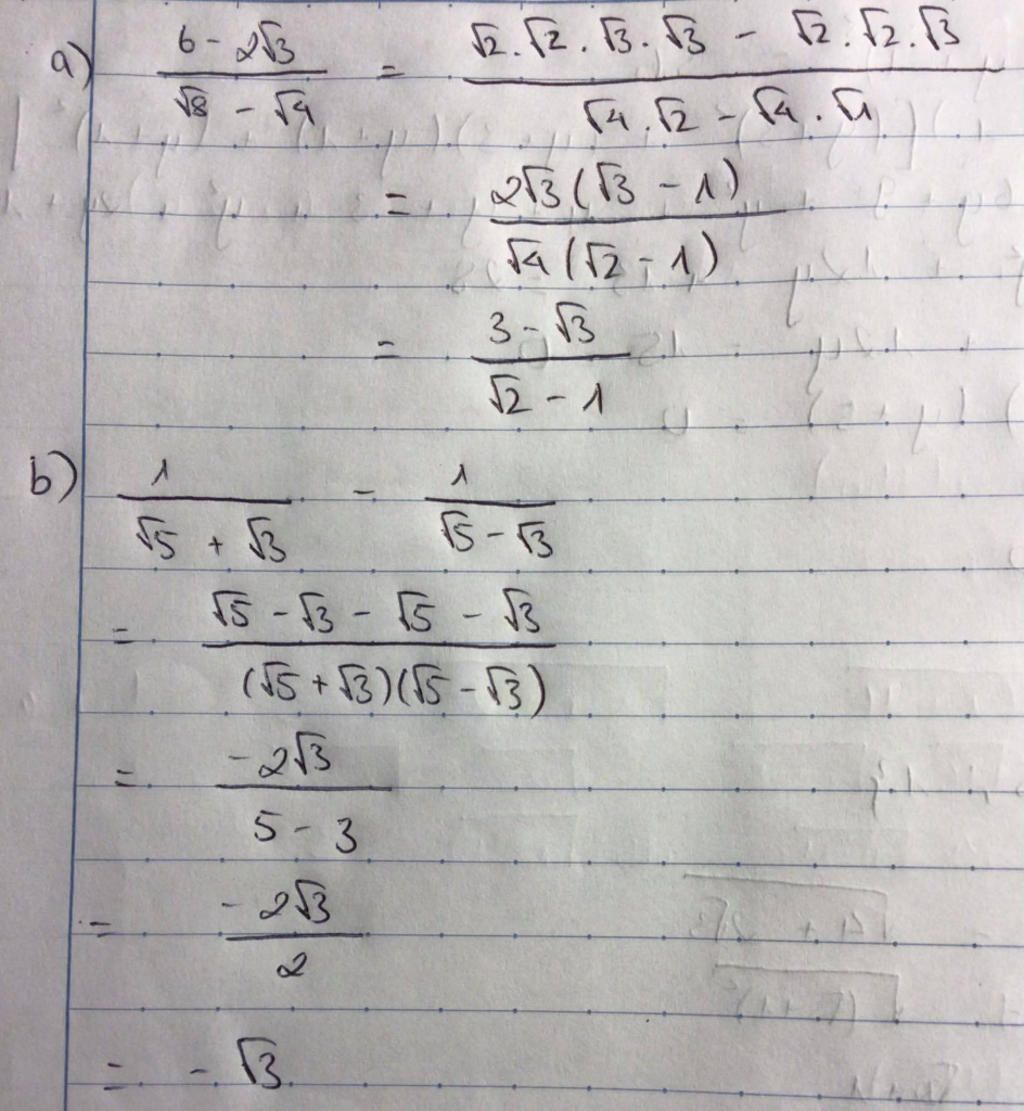 a) (6 - 2√3)/(√8 - √4) = (√2.√2.√3.√3 - √2.√2.√3)/(√4.√2 - √4.√1)
= (2√3(√3 - 1))/(√4(√2 - 1))
= (3 - √3)/(√2 - 1)
b) 1/(√5 + √3) - 1/(√5 - √3)
= (√5 - √3 - √5 - √3)/((√5 + √3)(√5 - √3))
= (-2√3)/(5 - 3)
= (-2√3)/2
= -√3